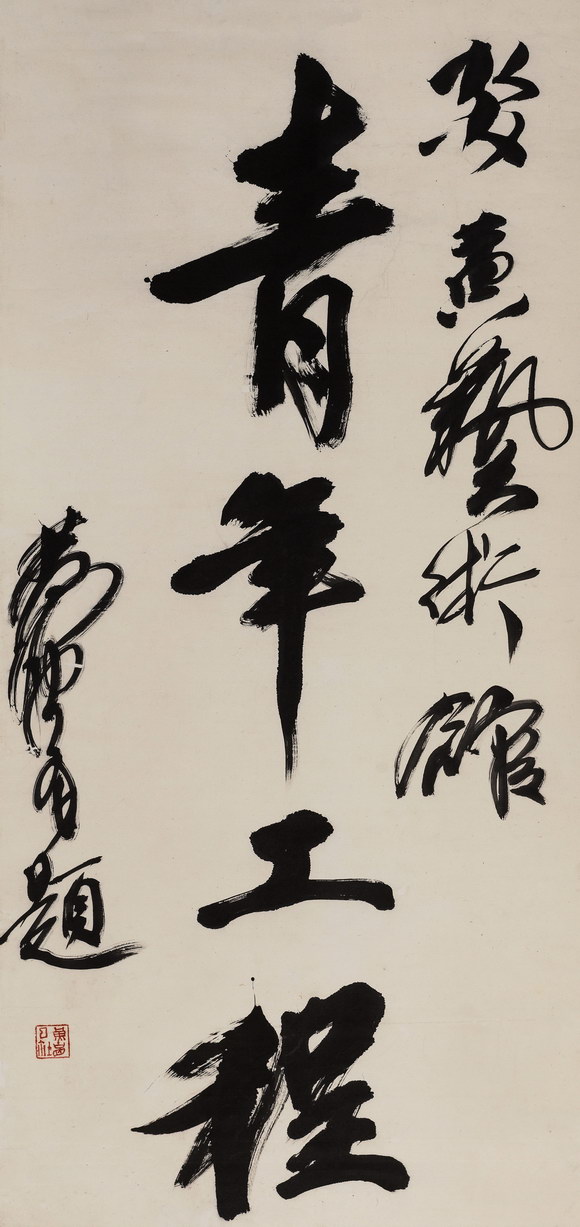 炎黄藝術館
青年工程
題